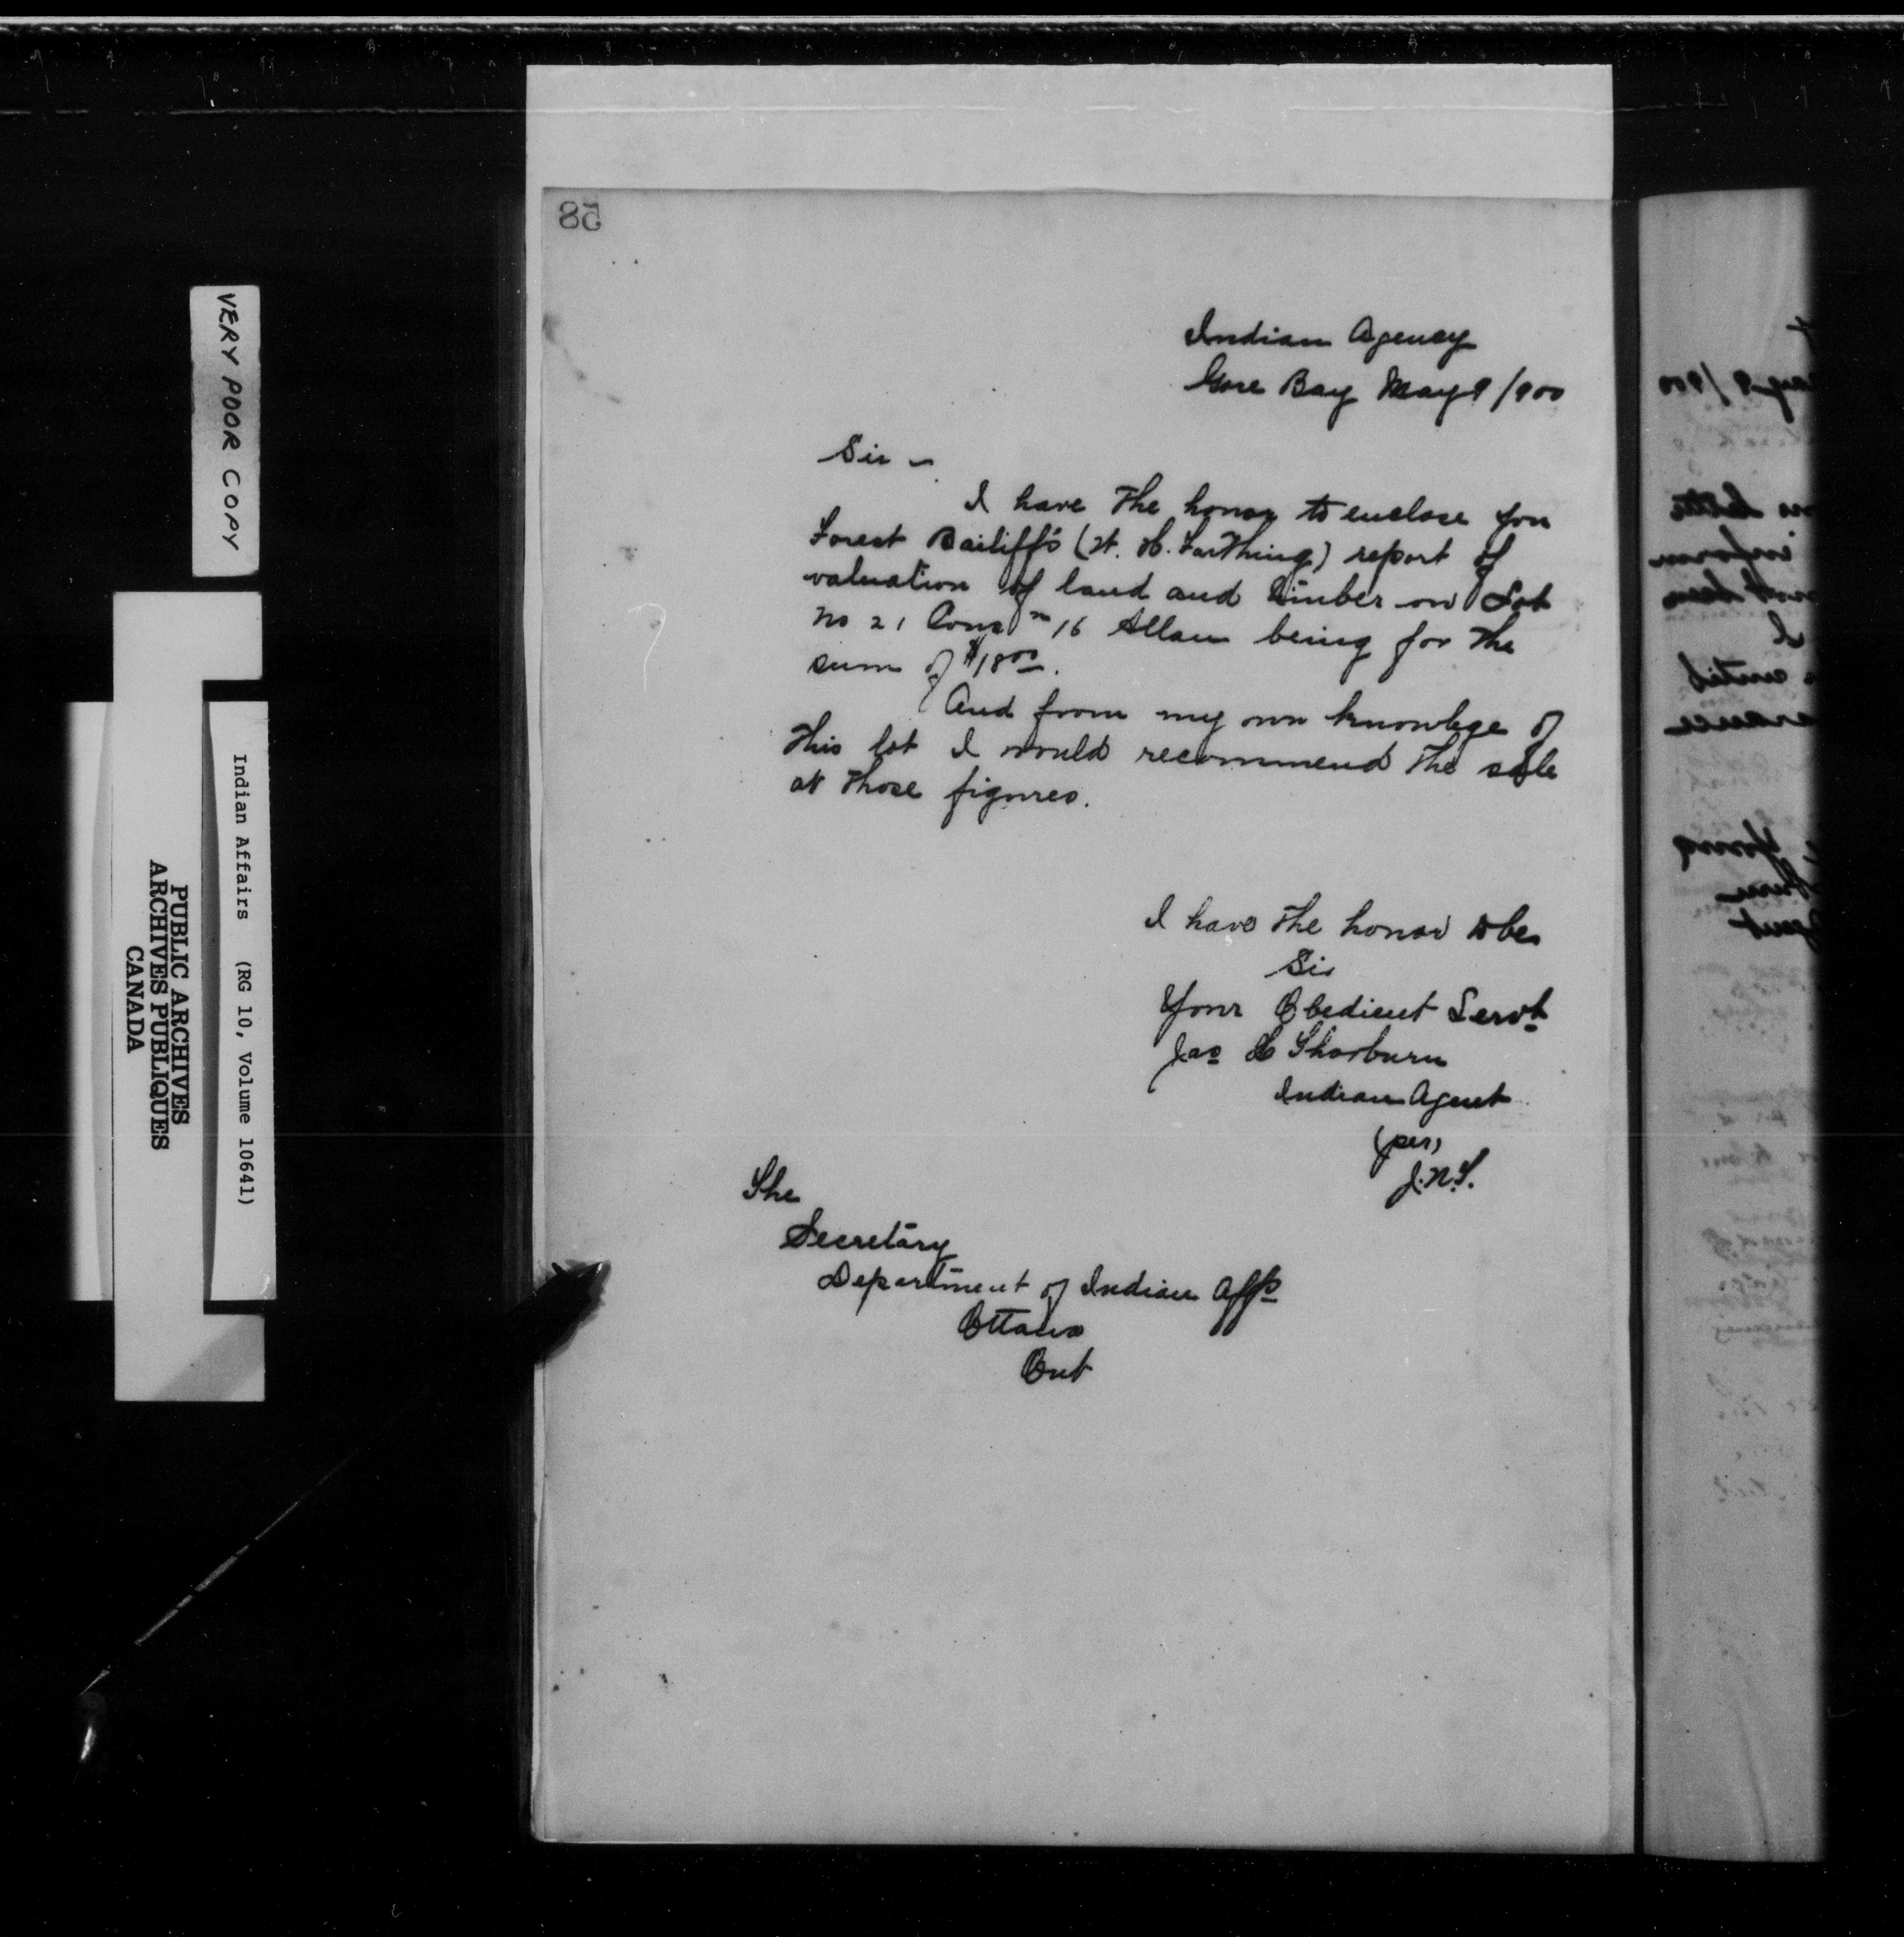 VERY POOR COPY
Indian Affairs (RG 10, Volume 10641)
PUBLIC ARCHIVES
ARCHIVES PUBLIQUES
CANADA
85
Indian Agency
Gore Bay May 9/900
Sir -
I have the honor to enclose you
Forest Bailiff's (W. H. Farthing) report of
valuation of land and timber on Lot
No 21 Conc 16 Allan being for the
sum of $18 00.
And from my own knowlege of
this lot I would recommend the sale
at those figures.
I have the honor to be
Sir
Your Obedient Servt
Jas H Thorburn
Indian Agent
(per)
J.N.T.
The
Secretary
Department of Indian Affs
Ottawa
Ont